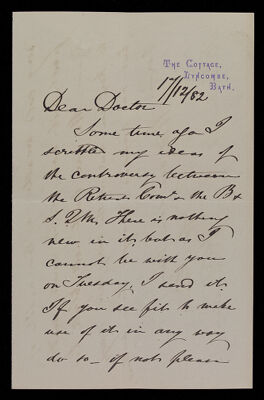 THE COTTAGE,
LYNCOMBE,
BATH.
17/12/82
Dear Doctor
Some time ago I
scribbled my ideas of
the controversy between
the Return Comrs & the B &
S. There is nothing
new in it, but as I
cannot be with you
on Tuesday, I send it.
If you see fit to make
use of it in any way
do so – if not please